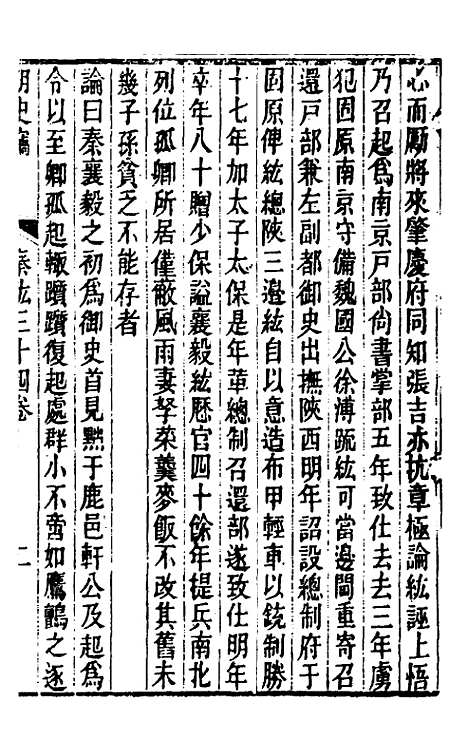 心而勵將來肇慶府同知張吉亦抗章極論紘誣上悟
乃召起爲南京戶部尚書掌部五年致仕去去三年虜
犯固原南京守備魏國公徐俌疏紘可當邊閫重寄召
還戶部兼左副都御史出撫陝西明年詔設總制府于
固原俾紘總陝三邊紘自以意造布甲輕車以銃制勝
十七年加太子太保是年革總制召還部遂致仕明年
卒年八十贈少保謚襄毅紘歷官四十餘年提兵南北
列位孤卿所居僅蔽風雨妻孥菜羹麥飯不改其舊未
幾子孫貧乏不能存者
論曰秦襄毅之初爲御史首見黜于鹿邑軒公及起爲
令以至卿孤起輙躓躓復起處群小不啻如鷹鸇之逐
明史竊 秦紘三十四卷 二